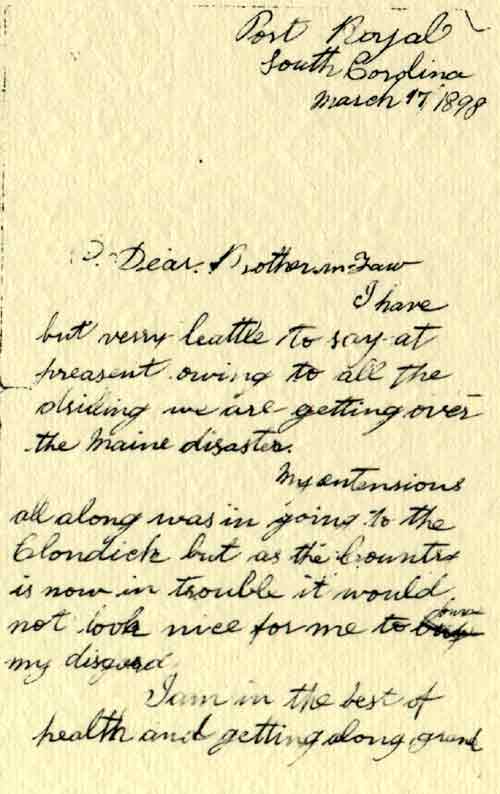 Port Royal
South Carolina
March 17, 1898
Dear. Brother-in-Law
I have
but verry leattle to say at
preasent owing to all the
drilling we are getting over
the Maine disaster.
My entensions
all along was in going to the
Clondick but as the Country
is now in trouble it would
not look nice for me to
my
I am in the best of
health and getting along grand